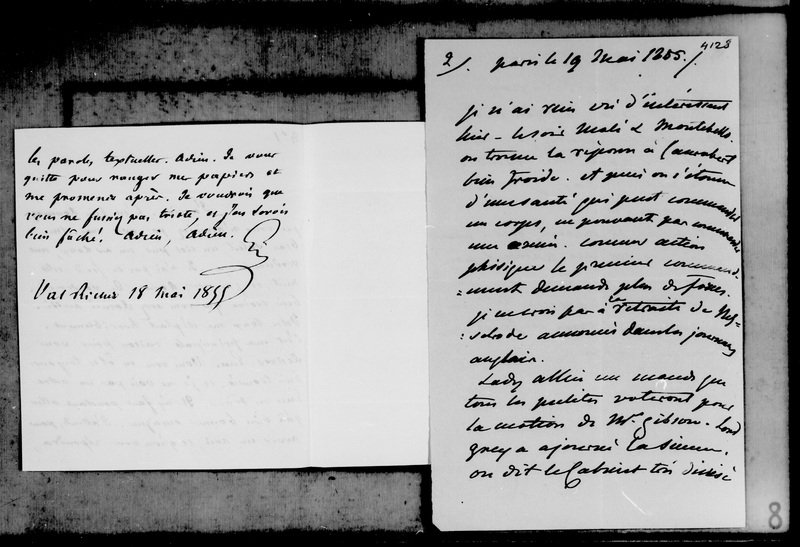 les paroles textuelles. Adieu. Je vous
quitte pour ranger mes papiers et
me promener après. Je voudrois que
vous ne fussiez pas triste, et j'en serois
bien fâché. Adieu, Adieu.
Val Richer 18 mai 1855
4128
2/. paris le 19 mai 1855./
je n'ai rien vu d'intéressant
hier - le soir Molé & Montebello.
on trouve la réponse à Canrobert
bien froide. et puis on s'étonne
d'une santé qui peut commander
un corps, ne pouvant pas commander
une armée. comme action
phisique le premier commande-
=ment demande plus de forces.
je ne crois pas à la retraite de Nes-
=selrode annoncée dans les journaux
anglais.
Lady Allice me mande que
tous les peelites voteront pour
la motion de Mr Gibson. Lord
grey a ajourné la sienne.
on dit le Cabinet très divisé
8